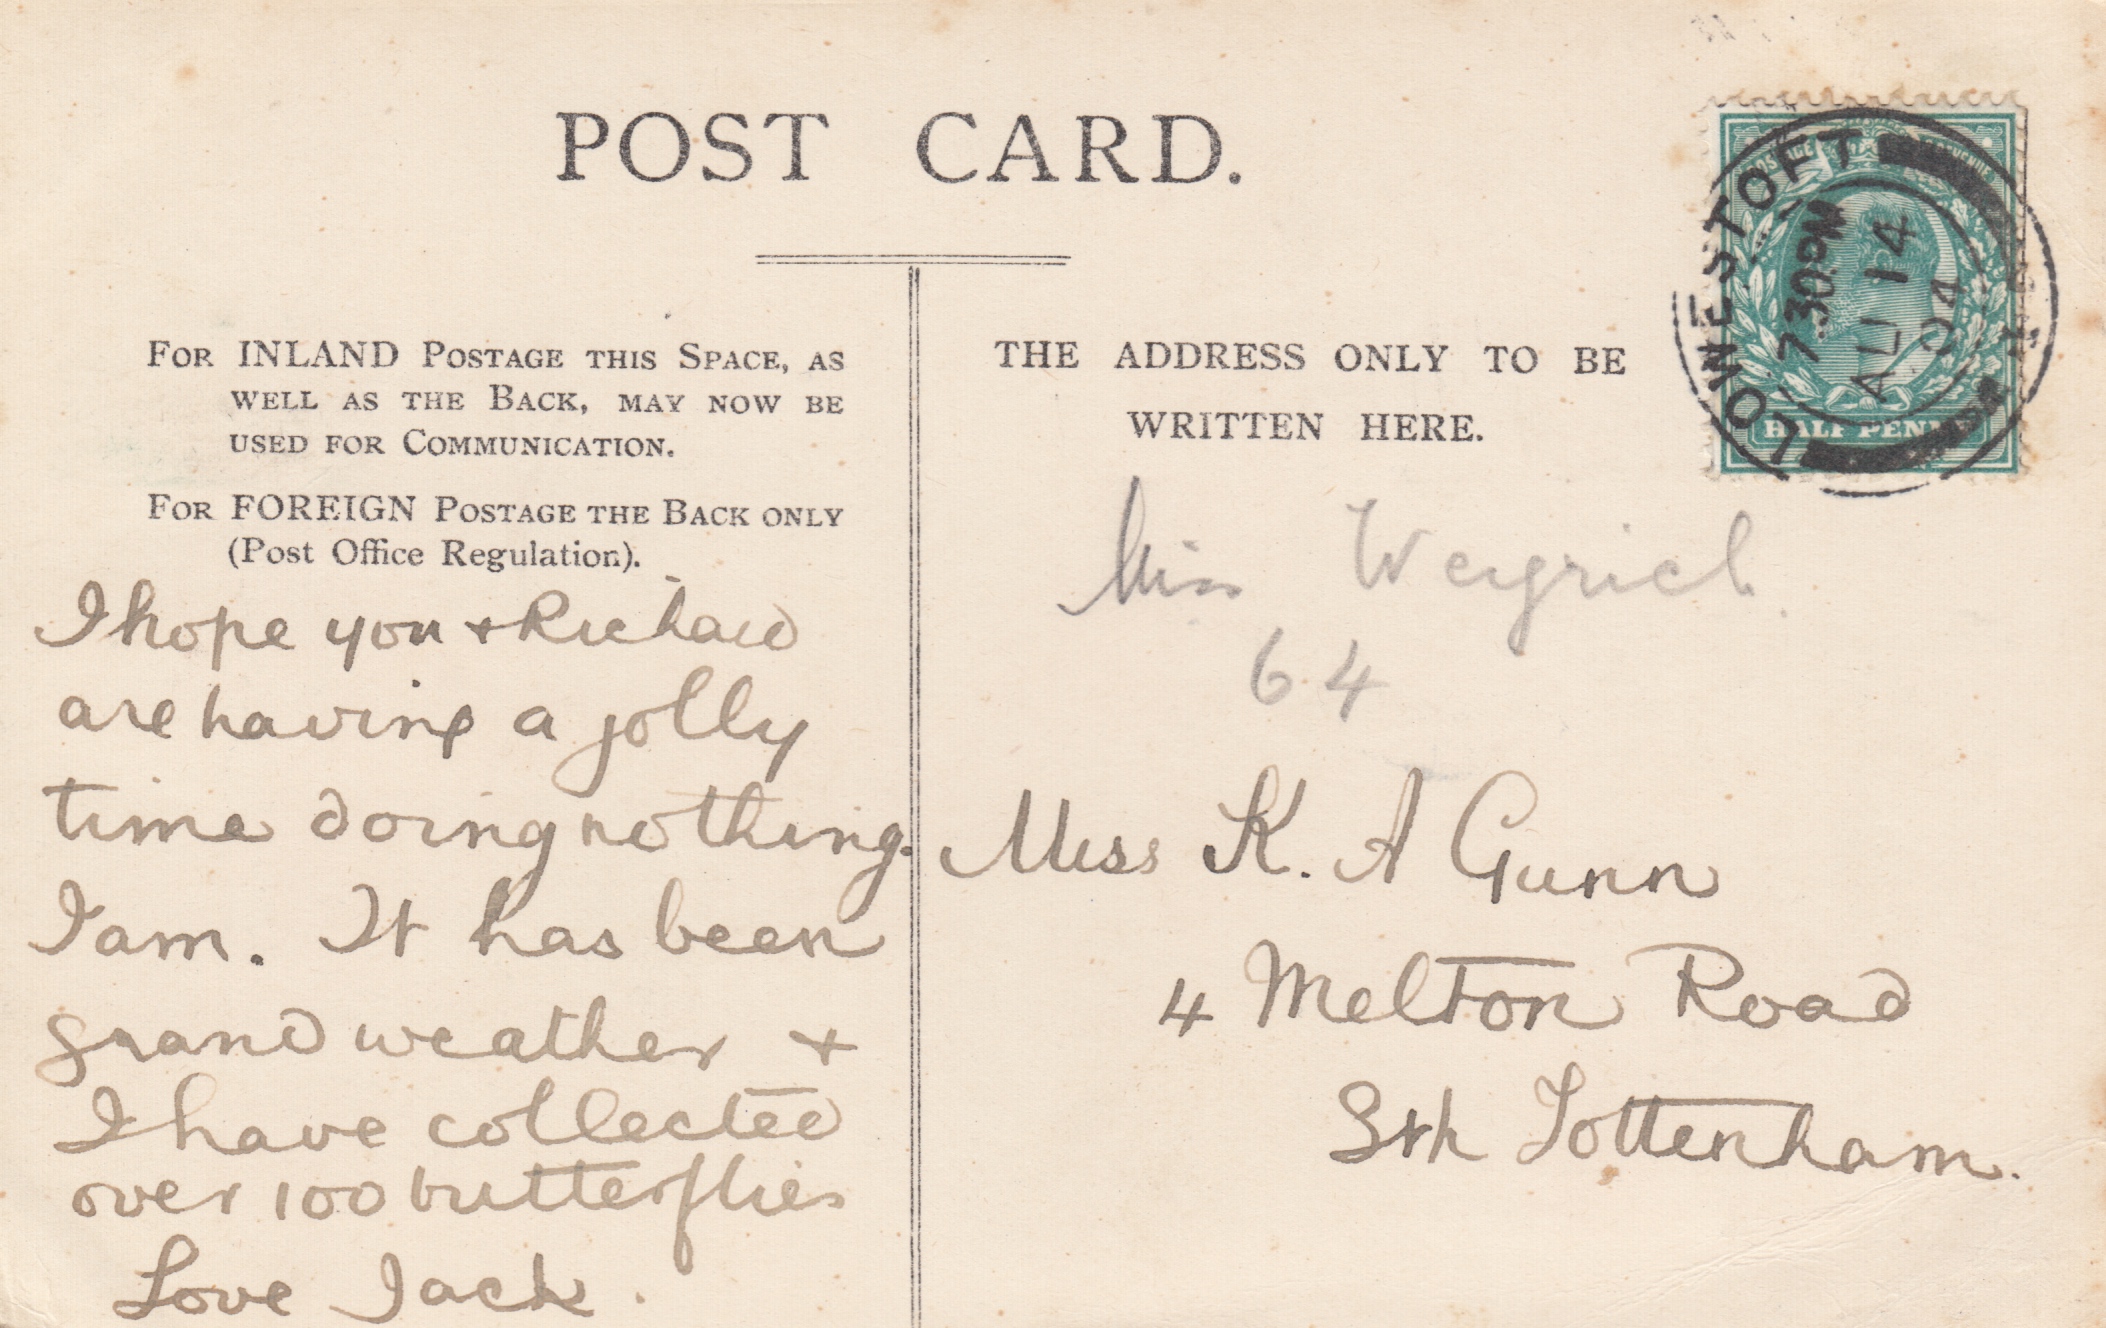 POST CARD.
FOR INLAND POSTAGE THIS SPACE, AS
WELL AS THE BACK, MAY NOW BE
USED FOR COMMUNICATION.
FOR FOREIGN POSTAGE THE BACK ONLY
(Post Office Regulation).
I hope you + Richard
are having a jolly
time doing nothing.
I am. It has been
grand weather +
I have collected
over 100 butterflies
Love Jack.
THE ADDRESS ONLY TO BE
WRITTEN HERE.
Miss Weyrich.
64
Miss K. A Gunn
4 Melton Road
Sth Tottenham.
POSTAGE REVENUE
HALF PENNY
LOWESTOFT
7.30PM
AU 14
04